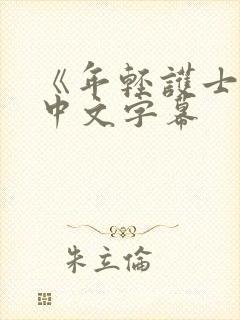 《年輕護士
中文字幕
朱立倫